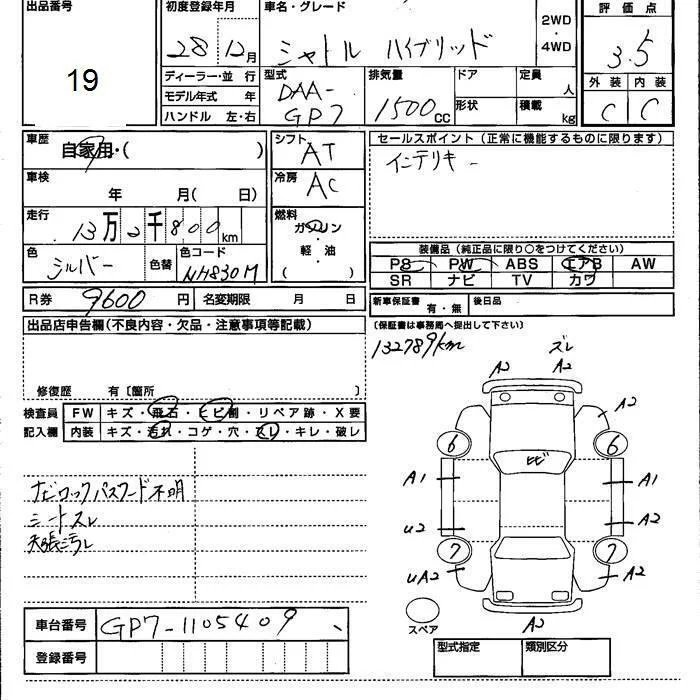 出品番号
19
初度登録年月
28 12月
車名・グレード
シャトル ハイブリッド
2WD
・
4WD
評価点
3.5
外装 内装
C C
ディーラー・並行
モデル年式 年
ハンドル 左・右
型式
DAA-
GP7
排気量
1500cc
ドア
形状
定員
人
積載
kg
車歴
自家用・( )
車検
年 月( 日)
走行
13万2千800km
色
シルバー
色替
色コード
NH830M
シフト
AT
冷房
AC
燃料
ガソリン
軽・油
( )
セールスポイント(正常に機能するものに限ります)
インテリキー
装備品(純正品に限り○をつけてください)
PS PW ABS エアB AW
SR ナビ TV カワ
R券 9600 円 名変期限 月 日
新車保証書 有・無 後日品
(保証書は事務局へ提出して下さい)
出品店申告欄(不良内容・欠品・注意事項等記載)
修復歴 有〔箇所 〕
検査員
記入欄
FW キズ・飛石・ヒビ割・リペア跡・X要
内装 キズ・汚れ・コゲ・穴・スレ・キレ・破レ
ナビロックパスワード不明
シートスレ
天張汚レ
132789km
ズレ
A2 A2
A2
6 6
ヒビ
A1 A1
U2 A2
7 7
UA2 A2
スペア
A2
車台番号 GP7-1105409
登録番号
型式指定 類別区分